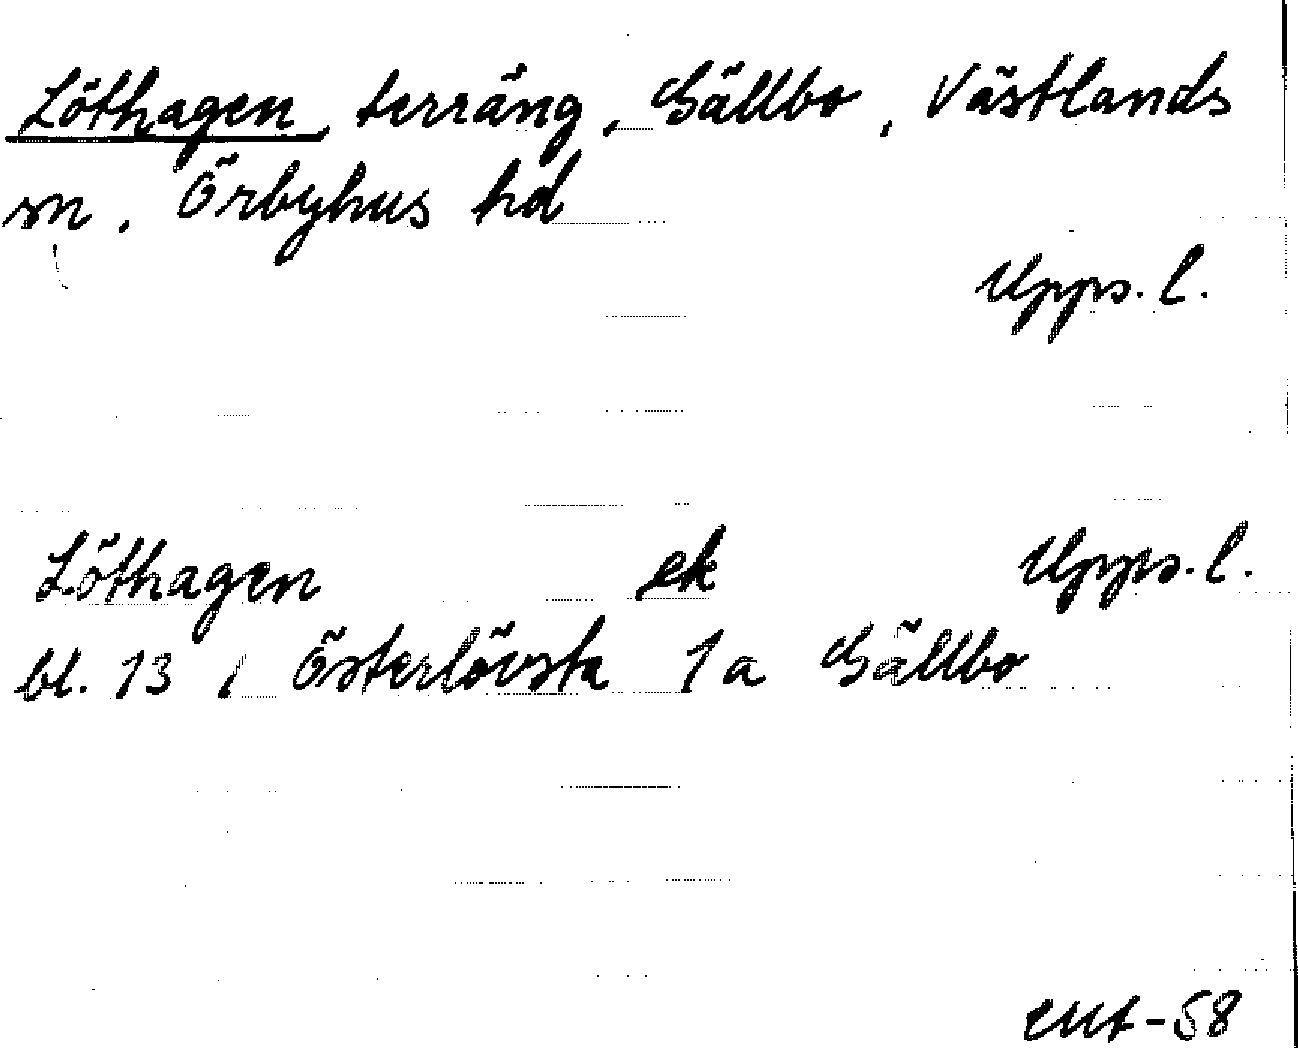 Löthagen, terräng, Sällbo, Västlands
sn, Örbyhus hd
Upps. l.
Löthagen ek Upps. l.
bl. 13 / Österlövsta 1a Sällbo
-58